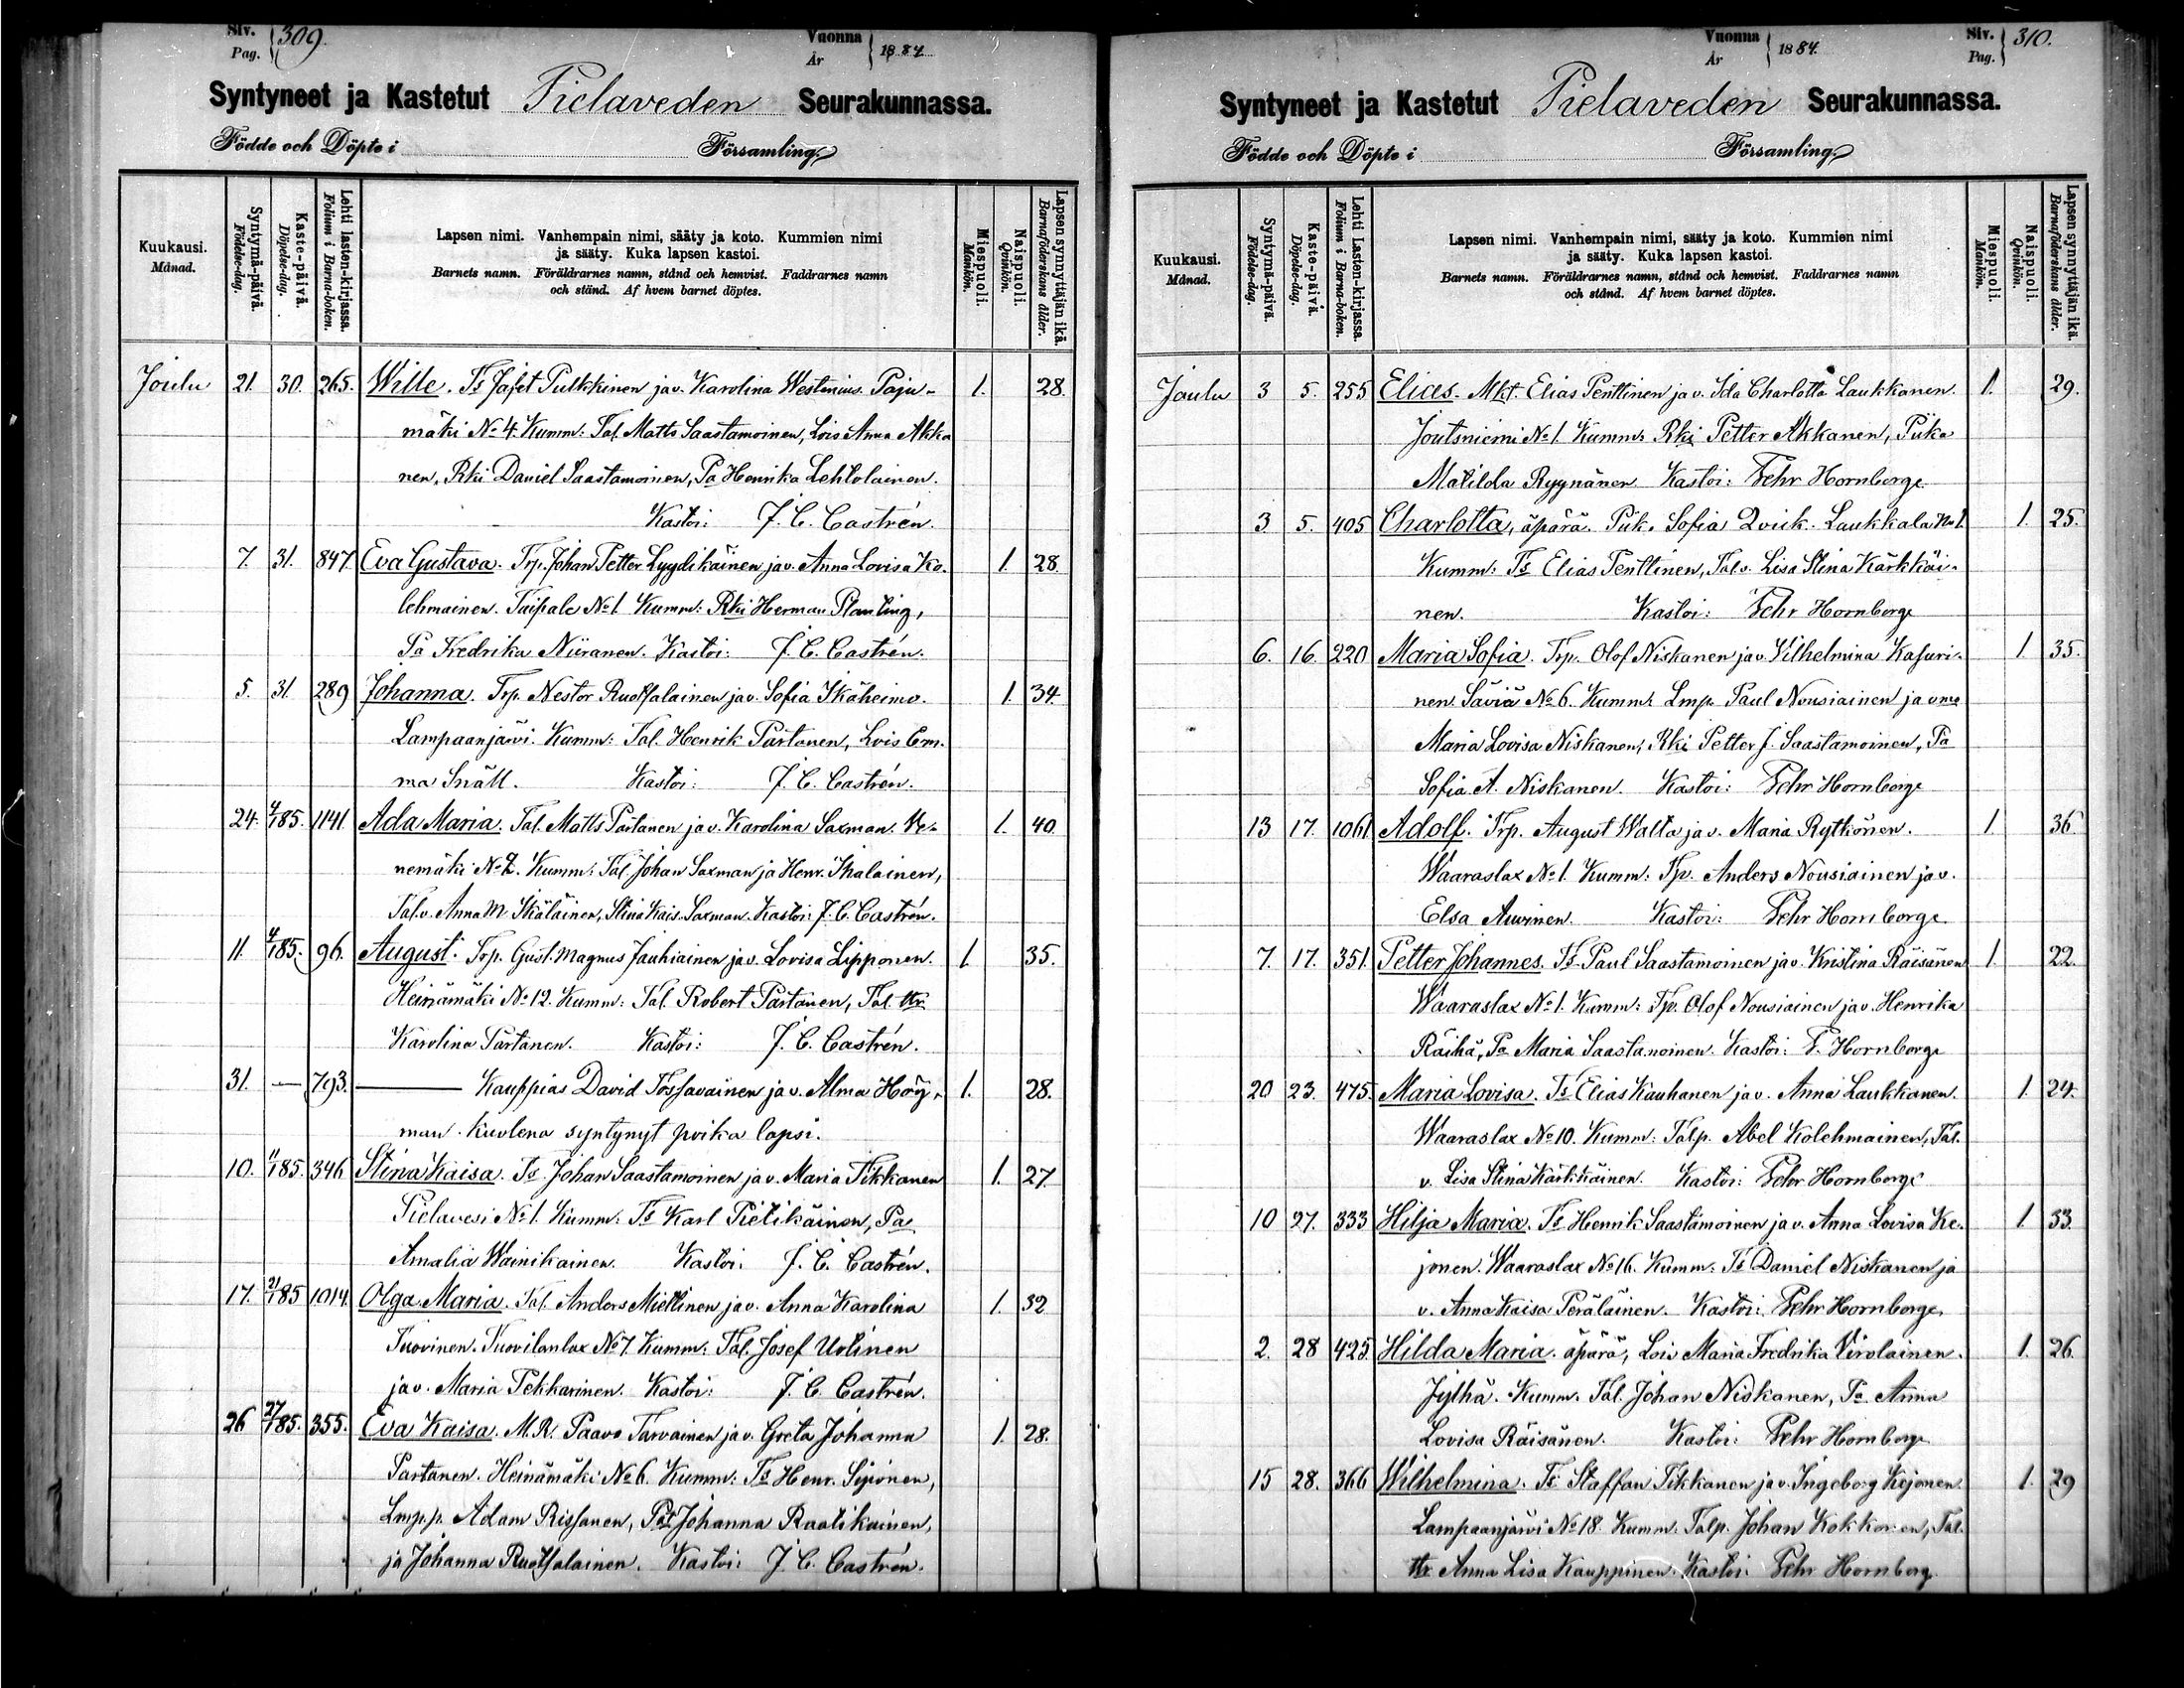 Siv. Pag. 309.
Vuonna År 1884
Syntyneet ja Kastetut Pielaveden Seurakunnassa.
Födde och Döpte i Församling.
Kuukausi. Månad.
Syntymä-päivä. Födelse-dag.
Kaste-päivä. Döpelse-dag.
Lehti lasten-kirjassa. Folium i Barna-boken.
Lapsen nimi. Vanhempain nimi, sääty ja koto. Kummien nimi
ja sääty. Kuka lapsen kastoi.
Barnets namn. Föräldrarnes namn, stånd och hemvist. Faddrarnes namn
och stånd. Af hvem barnet döptes.
Miespuoli. Mankön.
Naispuoli. Qvinkön.
Lapsen synnyttäjän ikä. Barnaföderskans ålder.
Joulu 21. 30. 265. Wille. Ts Jafet Pulkkinen ja v. Karolina Westenius. Paju- 1. 28.
mäki No 4. Kumm: Tal. Matts Saastamoinen, Lois Anna Akka
nen, Rki Daniel Saastamoinen, Pa Henrika Lehtolainen.
Kastoi: J. C. Castrén.
7. 31. 847 Eva Gustava. Trp. Johan Petter Lyydikäinen ja v. Anna Lovisa Ko- 1. 28
lehmainen. Taipale No 1. Kumm: Rki Herman Planting,
Pa Fredrika Niiranen. Kastoi: J. C. Castrén.
5. 31. 289 Johanna. Trp. Nestor Ruotsalainen ja v. Sofia Ikäheimo. 1. 34.
Lampaanjärvi. Kumm: Tal. Henrik Partanen, Lois Em-
ma Snäll. Kastoi: J. C. Castrén.
24. 4/1 85. 1141 Ada Maria. Tal. Matts Partanen ja v. Karolina Saxman. Ve- 1. 40
nemäki No 2. Kumm: Tal. Johan Saxman ja Henr. Ikalainen,
Tal.v. Anna M. Ikäläinen, Stina Kais. Saxman. Kastoi: J. C. Castrén.
11. 4/1 85. 96. August. Trp. Gust. Magnus Jauhiainen ja v. Lovisa Lipponen. 1. 35.
Heinämäki No 12. Kumm: Tal. Robert Partanen, Tal. ttr
Karolina Partanen. Kastoi: J. C. Castrén.
31. — 793. — Kauppias David Tossavainen ja v. Alma Hög- 1. 28.
man. Kuolena syntynyt poika lapsi.
10. 11/1 85. 346 Stina Kaisa. Ts. Johan Saastamoinen ja v. Maria Tikkanen 1. 27
Pielavesi No 1. Kumm: Ts Karl Pietikäinen, Pa
Amalia Wainikainen. Kastoi: J. C. Castrén.
17. 21/1 85 1014 Olga Maria. Tal. Anders Miettinen ja v. Anna Karolina 1. 32
Tuovinen. Tuovilanlax No 7. Kumm: Tal. Josef Uutinen
ja v. Maria Tekkarinen. Kastoi: J. C. Castrén.
26 27/1 85. 355. Eva Kaisa. M.R. Paavo Tarvainen ja v. Greta Johanna 1. 28.
Partanen. Heinämäki No 6. Kumm: Ts Henr. Siponen,
Lmp.p. Adam Rissanen, Pat Johanna Raatikainen,
ja Johanna Ruotsalainen. Kastoi: J. C. Castrén.
Vuonna År 1884.
Siv. Pag. 310.
Syntyneet ja Kastetut Pielaveden Seurakunnassa.
Födde och Döpte i Församling.
Kuukausi. Månad.
Syntymä-päivä. Födelse-dag.
Kaste-päivä. Döpelse-dag.
Lehti Lasten-kirjassa. Folium i Barna-boken.
Lapsen nimi. Vanhempain nimi, sääty ja koto. Kummien nimi
ja sääty. Kuka lapsen kastoi.
Barnets namn. Föräldrarnes namn, stånd och hemvist. Faddrarnes namn
och stånd. Af hvem barnet döptes.
Miespuoli. Mankön.
Naispuoli. Qvinkön.
Lapsen synnyttäjän ikä. Barnaföderskans ålder.
Joulu 3 5. 255 Elias. Mkt. Elias Penttinen ja v. Ida Charlotta Laukkanen. 1. 29.
Joutsniemi No 1. Kumm: Rki Petter Akkanen, Piika
Matilda Ryynänen Kastoi: Fehr Hornborge
3. 5. 405 Charlotta, äpärä. Piik. Sofia Qvick. Laukkala No 1. 1. 25.
Kumm: Ts Elias Penttinen, Tal.v. Lisa Stina Kärkkäi-
nen. Kastoi: Fehr Hornborge
6. 16. 220 Maria Sofia. Trp. Olof Niskanen ja v. Wilhelmina Kasuri- 1 35.
nen. Säviä No 6. Kumm: Lmp. Paul Nousiainen ja vmo
Maria Lovisa Niskanen, Rki Petter J. Saastamoinen, Pa
Sofia A. Niskanen. Kastoi: Fehr Hornborge
13 17. 1061 Adolf. Trp. August Walta ja v. Maria Rytkönen. 1 36.
Waaraslax No 1. Kumm: Tp. Anders Nousiainen ja v.
Elsa Auvinen. Kastoi: Fehr Hornborge.
7. 17. 351. Petter Johannes. Ts Paul Saastamoinen ja v. Kristina Räisänen 1. 22.
Waaraslax No 1. Kumm: Tp. Olof Nousiainen ja v. Henrika
Räihä, Pa Maria Saastamoinen. Kastoi: F. Hornborge
20 23. 475. Maria Lovisa. Ts Elias Kauhanen ja v. Anna Laukkanen. 1. 24.
Waaraslax No 10. Kumm: Talp. Abel Kolehmainen, Tal.
v. Lisa Stina Kärkkäinen. Kastoi: Fehr Hornborge
10 27. 333 Hilja Maria. Ts Henrik Saastamoinen ja v. Anna Lovisa Ke- 1. 33.
jonen. Waaraslax No 16. Kumm: Ts Daniel Niskanen ja
v. Anna Kaisa Peräläinen. Kastoi: Fehr Hornborge.
2. 28 425. Hilda Maria. äpärä, Lois Maria Fredrika Virolainen. 1. 26.
Jylhä. Kumm. Tal. Johan Niskanen, Pa Anna
Lovisa Räisänen. Kastoi: Fehr Hornborge
15 28. 366 Wilhelmina. Ts Staffan Tikkanen ja v. Ingeborg Kejonen. 1. 29
Lampaanjärvi No 18. Kumm: Talp. Johan Kokkonen, Tal.
ttr Anna Lisa Kauppinen. Kastoi: Fehr Hornborg.